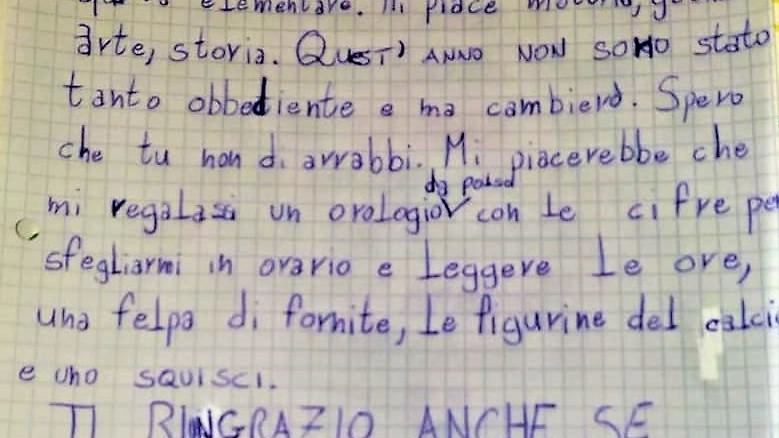 elementare. Mi piace motoria,
arte, storia. QUEST' ANNO NON SONO stato
tanto obbediente e ma cambierò. Spero
che tu non di arrabbi. Mi piacerebbe che
da polso
mi regalassi un orologio con le cifre per
sfegliarmi in orario e leggere le ore,
una felpa di fornite, le figurine del calcio
e uno SQUISCI.
TI RINGRAZIO ANCHE SE